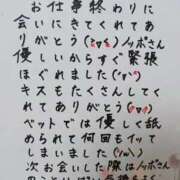 お仕事終わりに
会いにきてくれてあ
りがとう(**)ノッポさん
優しいからすぐ緊張
ほぐれました(^o^)
キスもたくさんしてく
れてありがとう(**)
ベットでは優しく舐
められて何回もイッて
しまいました(^^)
次お会いした際はノッポさん